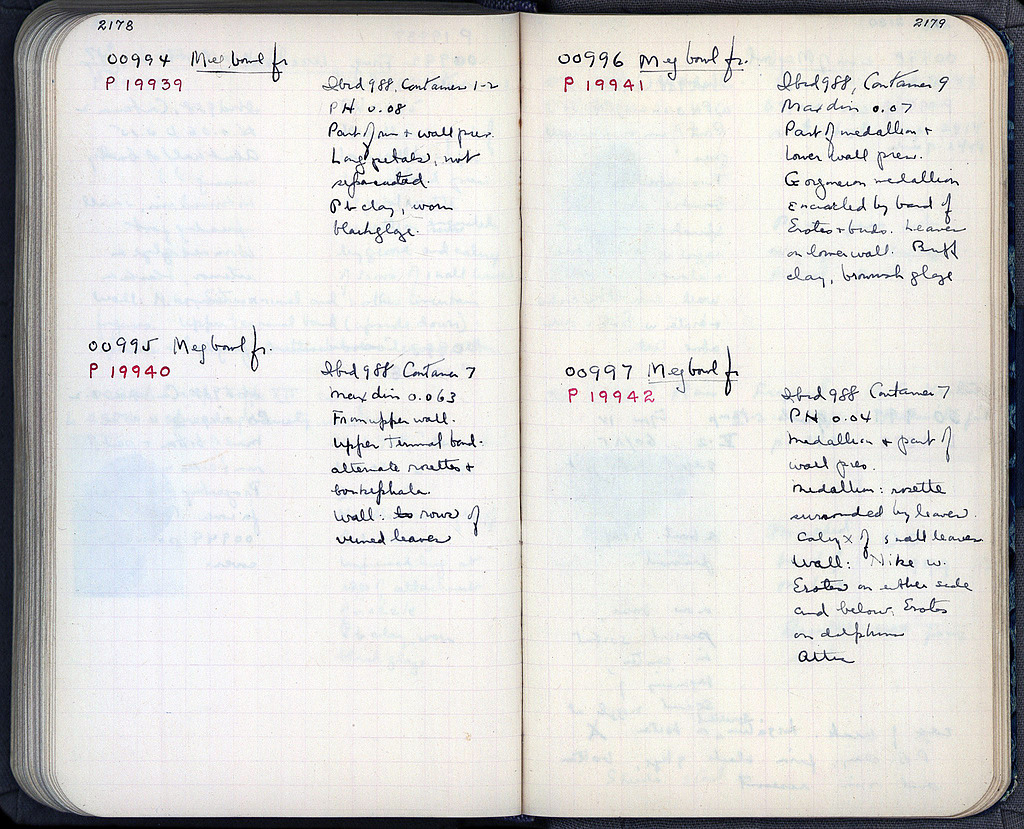 2178
OO994 Meg bowl fr.
P 19939
Ibid 988, Container 1-2
PH 0.08
Part of rim + wall pres.
Long petals, not
separated.
Pk clay, worn
black glaze.
OO995 Meg bowl fr.
P 19940
Ibid 988, Container 7
Max dim 0.063
From upper wall.
Upper Terminal band.
alternate rosettes +
boukephala.
Wall: rows of
veined leaves
2179
OO996 Meg bowl fr.
P 19941
Ibid 988, Container 9
Max dim 0.07
Part of medallion +
lower wall pres.
Gorgoneion medallion
encircled by band of
Erotes + buds. Leaves
on lower wall. Buff
clay, brownish glaze
OO997 Meg bowl fr
P 19942
Ibid 988 Container 7
PH 0.04
Medallion + part of
wall pres.
Medallion: rosette
surrounded by leaves.
Calyx of small leaves
Wall: Nike w.
Erotes on either side
and below, Erotes
on dolphins
Attic